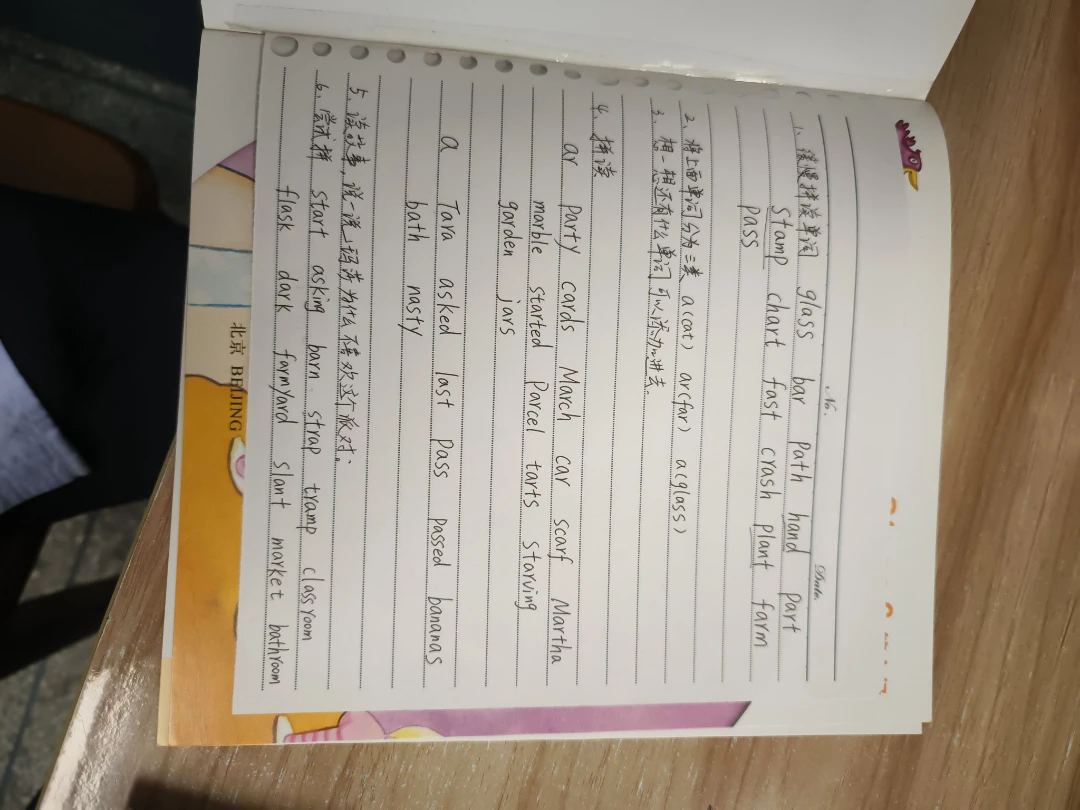 No.
Date.
1、慢慢拼读单词 glass bar path hand part
stamp chart fast crash plant farm
pass
2、将上面单词分为三类 a(cat) ar(far) a(glass)
3、想一想还有什么单词可以添加进去。
4、拼读
ar party cards March car scarf Martha
marble started Parcel tarts starving
garden jars
a Tara asked last pass passed bananas
bath nasty
5、读故事,说一说玛莎为什么不喜欢这个派对。
6、尝试拼 start asking barn strap tramp classroom
flask dark farmyard slant market bathroom
北京 BEIJING